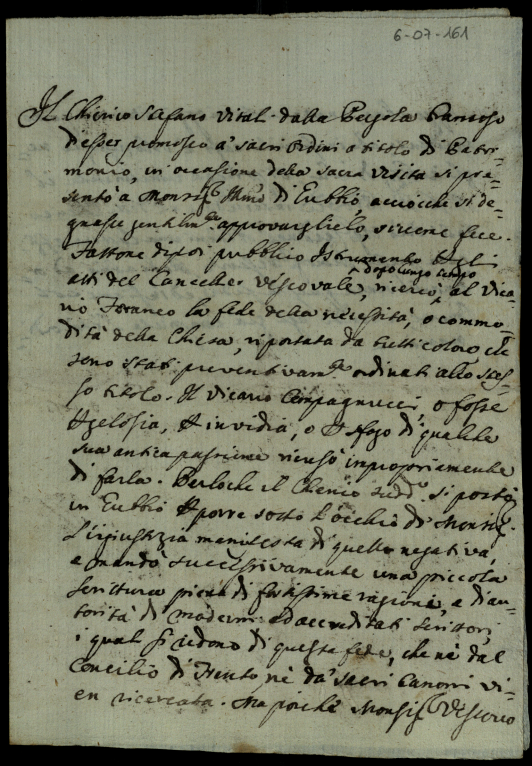 6-07-161
Il Chierico Stefano Vitali dalla Pergola
d'esser promosso a' sacri Ordini a titolo di Patri-
monio, in occasione della sacra visita si pre-
sentò a Monsig.r Ill.mo di Eubbio, acciocche si de-
gnasse gentilm.te approvarglielo, siccome fece.
Fattone dipoi pubblico Istrumento
dopo lungo tempo
atti del Cancellier Vescovale, ricercò al Vica-
rio Foraneo la fede della necessità, o commo-
dità della Chiesa, riportata da tutti coloro che
sono stati preventivam.te ordinati allo stes-
so titolo. Il Vicario Compagnucci, o fosse
gelosia, invidia, o sfogo di qualche
sua antica passione ricusò impropriamente
di farla. Perloche il Chierico sudd.o si portò
in Eubbio porre sotto l'occhio di Monsig.r
l'ingiustizia manifesta di quella negativa,
e mandò successivamente una piccola
scrittura piena di fortissime ragioni, e d'au-
torità di moderni ed accreditati scrittori,
i quali di questa fede, che nè dal
Concilio di Trento, nè da' sacri Canoni vi-
en ricercata. Ma poichè Monsig.r Vescovo